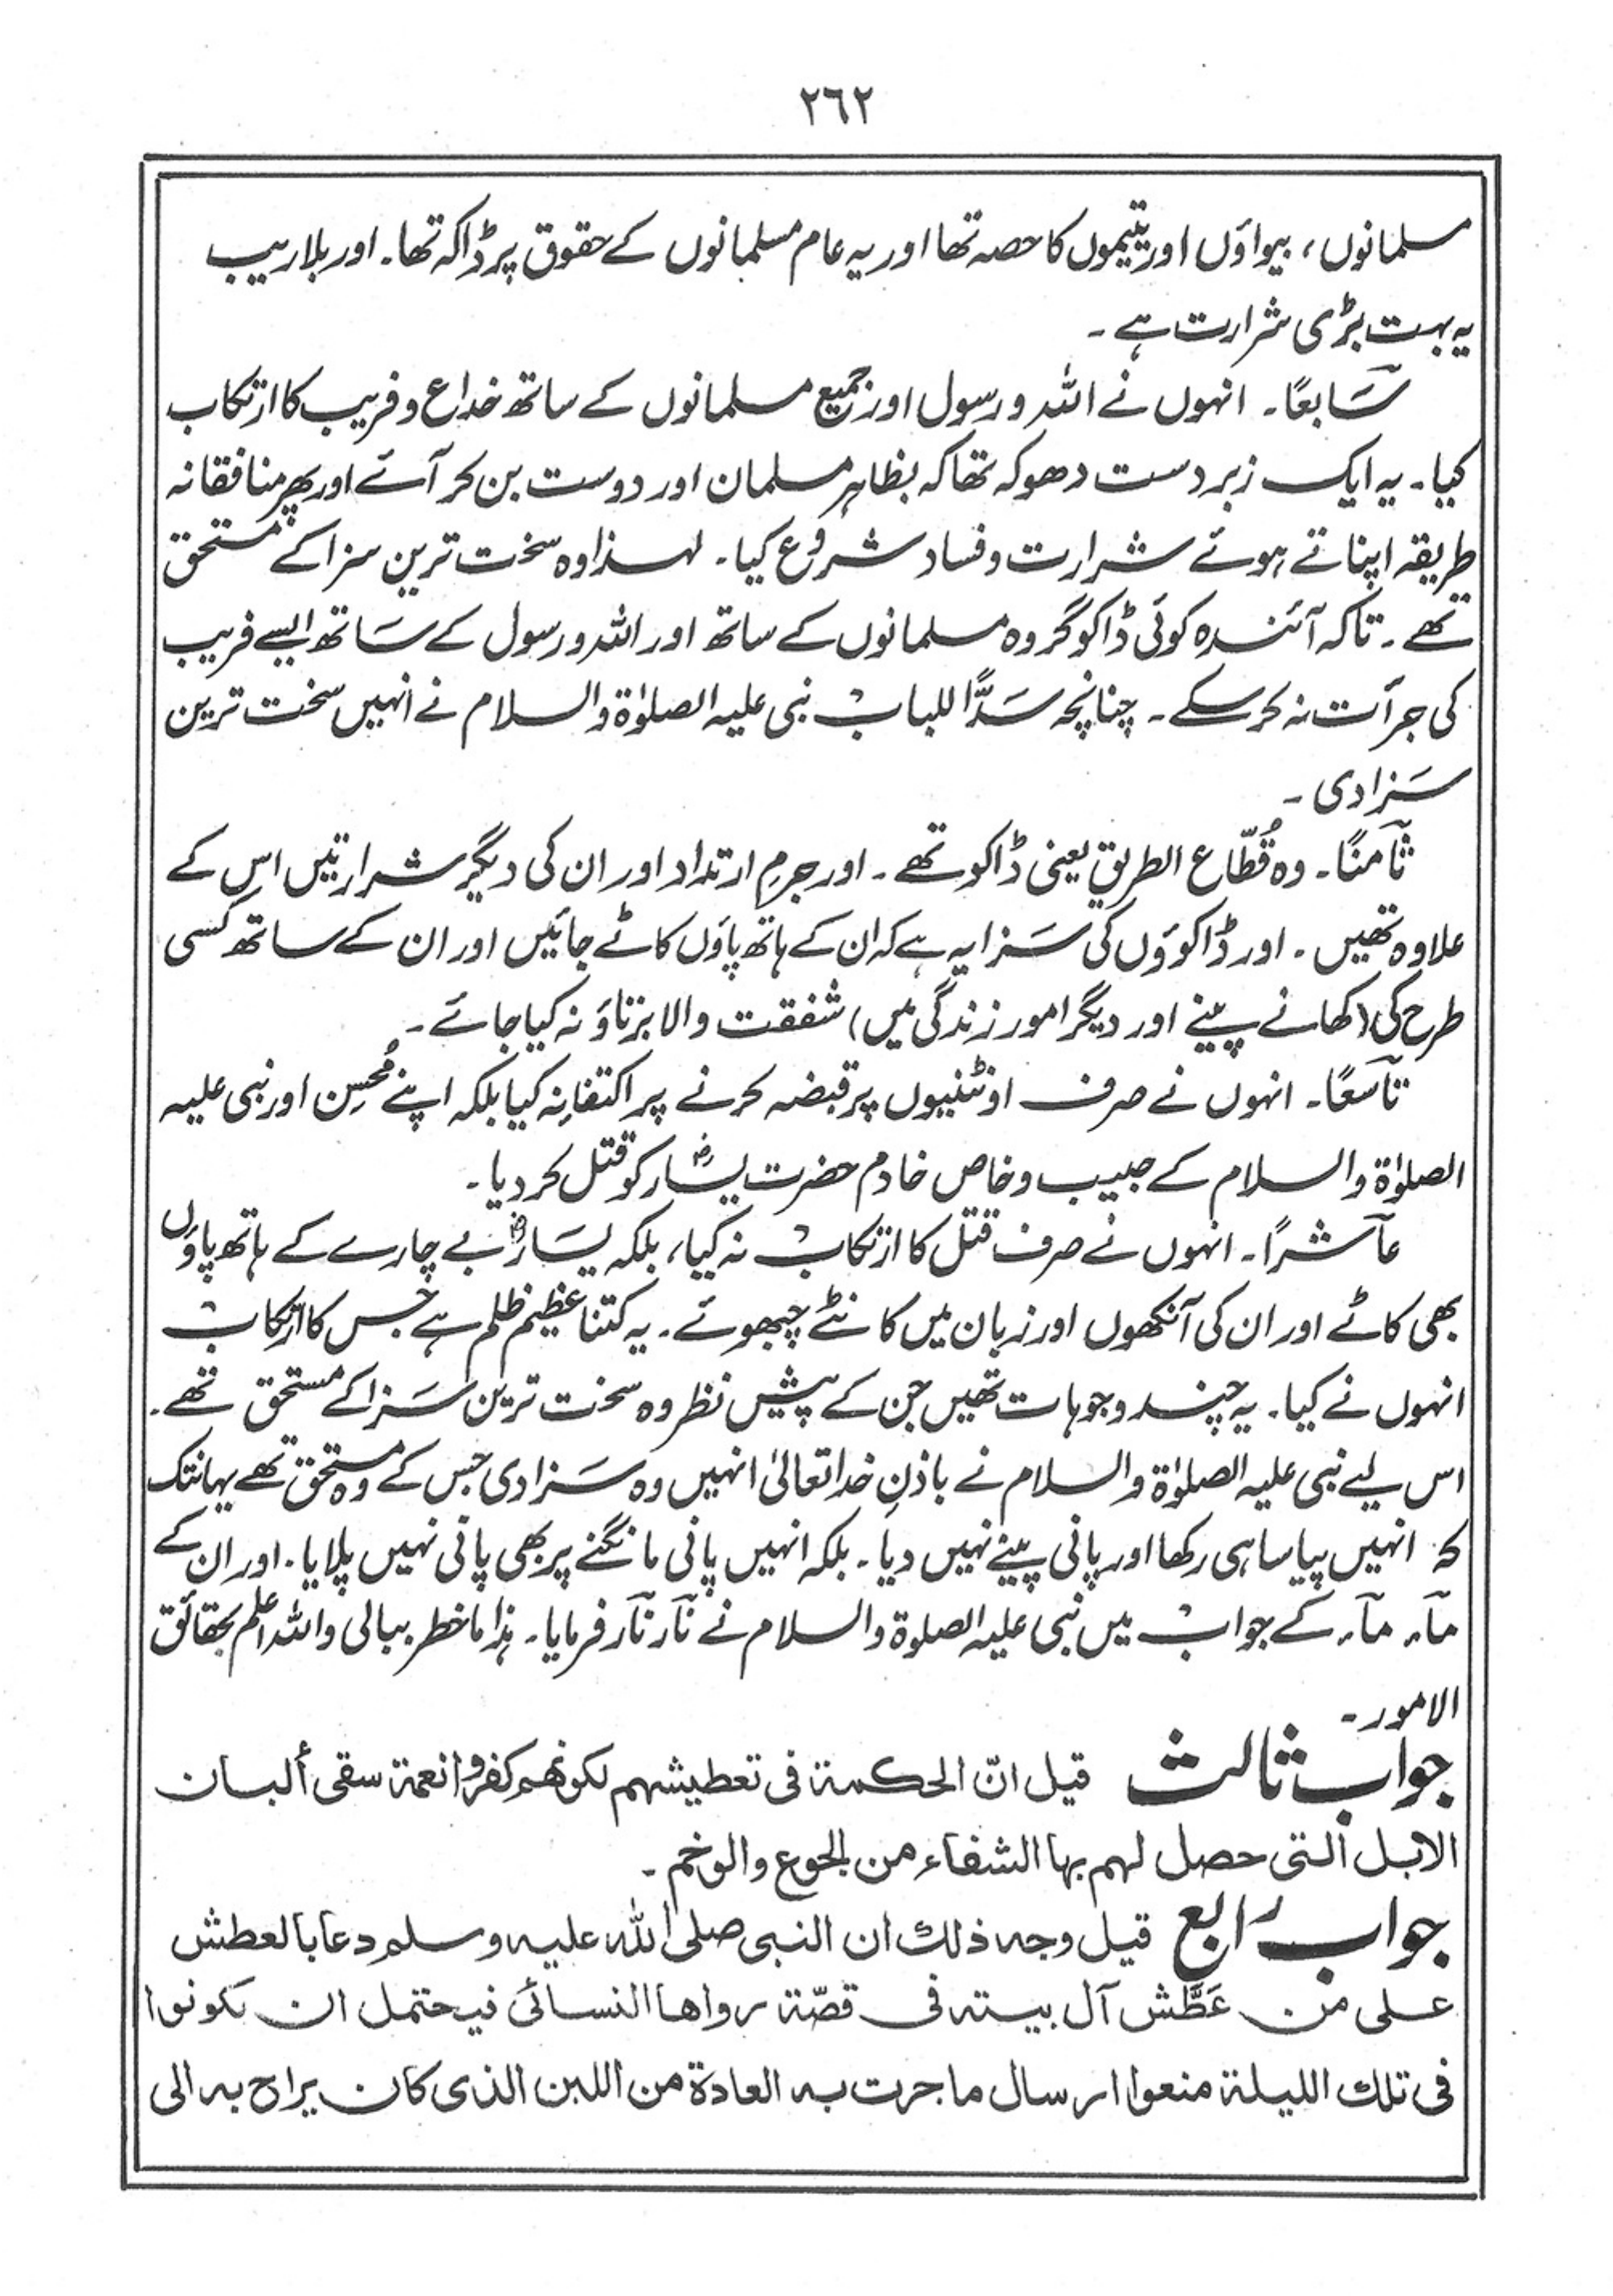 ٢٦٢
مسلمانوں، بیواؤں اور یتیموں کا حصہ تھا اور یہ عام مسلمانوں کے حقوق پر ڈاکہ تھا۔ اور بلاریب
یہ بہت بڑی شرارت ہے۔
سَابعًا۔ انہوں نے اللہ و رسول اور جمیع مسلمانوں کے ساتھ خداع و فریب کا ارتکاب
کیا۔ یہ ایک زبردست دھوکہ تھا کہ بظاہر مسلمان اور دوست بن کر آئے اور پھر منافقانہ
طریقہ اپناتے ہوئے شرارت و فساد شروع کیا۔ لہٰذا وہ سخت ترین سزا کے مستحق
تھے۔ تاکہ آئندہ کوئی ڈاکو گروہ مسلمانوں کے ساتھ اور اللہ و رسول کے سَاتھ ایسے فریب
کی جرأت نہ کرسکے۔ چنانچہ سَدًّا للباب نبی علیہ الصلوٰۃ والسلام نے انہیں سخت ترین
سَزا دی۔
ثآمنًا۔ وہ قُطّاع الطریق یعنی ڈاکو تھے۔ اور جرمِ ارتداد اور ان کی دیگر شرارتیں اس کے
علاوہ تھیں۔ اور ڈاکوؤں کی سَزا یہ ہے کہ ان کے ہاتھ پاؤں کاٹے جائیں اور ان کے ساتھ کسی
طرح کی (کھانے پینے اور دیگر امور زندگی میں) شفقت والا برتاؤ نہ کیا جائے۔
تآسعًا۔ انہوں نے صرف اونٹنیوں پر قبضہ کرنے پر اکتفا نہ کیا بلکہ اپنے مُحسِن اور نبی علیہ
الصلوٰۃ والسلام کے حبیب و خاص خادم حضرت یسارؓ کو قتل کر دیا۔
عآشرًا۔ انہوں نے صرف قتل کا ارتکاب نہ کیا، بلکہ یسَارؓ بے چارے کے ہاتھ پاؤں
بھی کاٹے اور ان کی آنکھوں اور زبان میں کانٹے چبھوئے۔ یہ کتنا عظیم ظلم ہے جس کا ارتکاب
انہوں نے کیا۔ یہ چند وجوہات تھیں جن کے پیش نظر وہ سخت ترین سَزا کے مستحق تھے۔
اس لیے نبی علیہ الصلوٰۃ والسلام نے باذنِ خدا تعالیٰ انہیں وہ سَزا دی جس کے وہ مستحق تھے یہانتک
کہ انہیں پیاسا ہی رکھا اور پانی پینے نہیں دیا۔ بلکہ انہیں پانی مانگنے پر بھی پانی نہیں پلایا۔ اور ان کے
مآء مآء کے جواب میں نبی علیہ الصلوۃ والسلام نے نآر نآر فرمایا۔ ہذا ما خطر ببالی واللہ اعلم بحقائق
الامور۔
جواب ثالث قیل انّ الحکمة فی تعطیشهم لکونهم کفروا نعمة سقی ألبان
الابل التی حصل لهم بها الشفاء من الجوع والوخم۔
جواب رابع قیل وجه ذلك ان النبی صلی الله علیه وسلم دعا بالعطش
علی من عَطَّش آل بیته فی قصّة رواها النسائی فیحتمل ان یکونوا
فی تلك اللیلة منعوا ارسال ما جرت به العادة من اللبن الذی کان یراح به الی